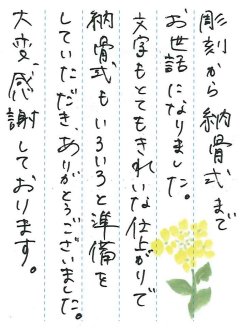 彫刻から納骨式まで
お世話になりました。
文字もとてもきれいな仕上がりで
納骨式もいろいろと準備を
していただき、ありがとうございました。
大変、感謝しております。